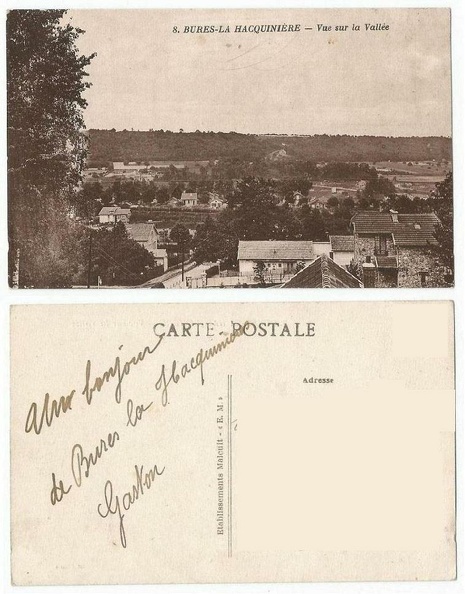 8. BURES-LA HACQUINIÈRE — Vue sur la Vallée
CARTE POSTALE
Adresse
Un bonjour
de Bures la Hacquinière
Gaston
Etablissements Malcuit - « E. M »